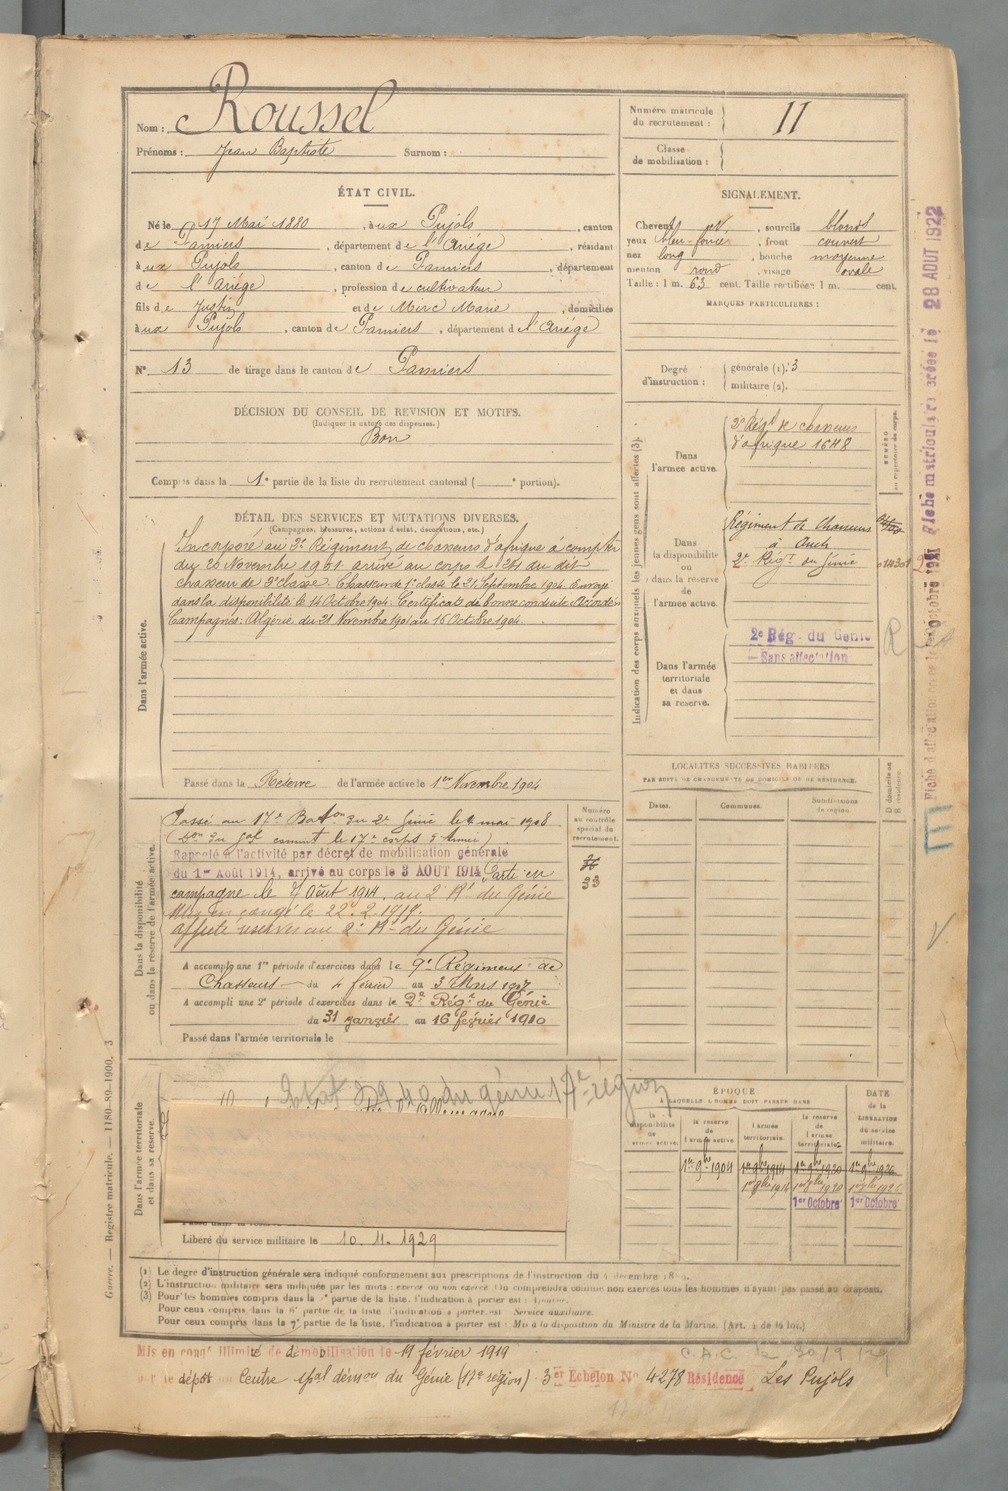 Nom : Roussel
Prénoms : Jean Baptiste Surnom :
Numéro matricule du recrutement : 11
Classe de mobilisation :
ÉTAT CIVIL.
Né le 17 Mai 1880, à ux Pujols, canton
de Pamiers, département de l'Ariége, résidant
à ux Pujols, canton de Pamiers, département
de l'Ariége, profession de cultivateur
fils de Justin et de Merc Marie, domiciliés
à ux Pujols, canton de Pamiers, département de l'Ariége
N° 13 de tirage dans le canton de Pamiers
SIGNALEMENT.
Cheveux et, sourcils blonds
yeux bleu foncé, front couvert
nez long, bouche moyenne
menton rond, visage ovale
Taille : 1 m. 63 cent. Taille rectifiée : 1 m. cent.
MARQUES PARTICULIÈRES :
Degré d'instruction : générale (1). 3
militaire (2).
DÉCISION DU CONSEIL DE REVISION ET MOTIFS.
(Indiquer la nature des dispenses.)
Bon
Compris dans la 1e partie de la liste du recrutement cantonal ( e portion).
DÉTAIL DES SERVICES ET MUTATIONS DIVERSES.
(Campagnes, blessures, actions d'éclat, décorations, etc.)
Dans l'armée active.
Incorporé au 3e Régiment de chasseurs d'afrique à compter
du 20 Novembre 1901 arrivé au corps le 21 du dit
chasseur de 2e classe. Chasseur de 1e classe le 21 Septembre 1904. Envoyé
dans la disponibilité le 14 Octobre 1904. Certificat de bonne conduite Accordé
Campagnes : Algérie du 21 Novembre 1901 au 15 Octobre 1904
Passé dans la Réserve de l'armée active le 1er Novembre 1904
Indication des corps auxquels les jeunes gens sont affectés (3).
NUMÉRO
Dans l'armée active.
3e Régt de chasseurs
d'afrique 1648
Dans la disponibilité ou dans la réserve de l'armée active.
Régiment de Chasseurs
à Auch
2e Régt du Génie
Dans l'armée territoriale et dans sa réserve.
2e Rég. du Génie
Sans affectation
R
Fiche matriculaire créée le 28 AOUT 1922
LOCALITÉS SUCCESSIVES HABITÉES
PAR SUITE DE CHANGEMENTS DE DOMICILE OU DE RÉSIDENCE.
Dates. Communes. Subdivisions de région. D domicile ou R résidence.
Dans la disponibilité ou dans la réserve de l'armée active.
Numéro au contrôle spécial du recrutement.
23
Passé au 17e Baton du 2e Génie le 4 mai 1908
Rappelé à l'activité par décret de mobilisation générale
du 1er Août 1914, arrivé au corps le 3 AOUT 1914 Parti en
campagne le 7 Août 1914. au 2e Rt du Génie
Mis en congé le 22.2.1919.
affecté réserve au 2e Rt du Génie
A accompli une 1re période d'exercices dans le 9e Régiment de
Chasseurs du 4 février au 3 Mars 1907
A accompli une 2e période d'exercices dans le 2e Régt du Génie
du 31 janvier au 16 février 1910
Passé dans l'armée territoriale le
Dans l'armée territoriale et dans sa réserve.
du génie 17e région
Libéré du service militaire le 10.11.1929
ÉPOQUE
À LAQUELLE L'HOMME DOIT PASSER DANS
la disponibilité de l'armée active. la réserve de l'armée active. l'armée territoriale. la réserve de l'armée territoriale.
DATE de la LIBÉRATION du service militaire.
1er 9bre 1904 1er 9bre 1914 1er 9bre 1920 1er 9bre 1926
1er 9bre 1914 1er 9bre 1920 1er 9bre 1926
1er Octobre 1er Octobre
(1) Le degré d'instruction générale sera indiqué conformément aux prescriptions de l'instruction du
(2) L'instruction militaire sera indiquée par les mots : exercé ou non exercé. On comprendra comme non exercés tous les hommes n'ayant pas passé au drapeau.
(3) Pour les hommes compris dans la 1e partie de la liste, l'indication à porter est :
Pour ceux compris dans la 6e partie de la liste, l'indication à porter est : Service auxiliaire.
Pour ceux compris dans la 7e partie de la liste, l'indication à porter est : Mis à la disposition du Ministre de la Marine. (Art. 4 de la loi.)
Guerre. — Registre matricule. — 1180-89-1900. 3
Mis en congé illimité de démobilisation le 19 février 1919
par le dépôt Centre démou du Génie (17e région) 3er Echelon No 4278 Résidence Les Pujols